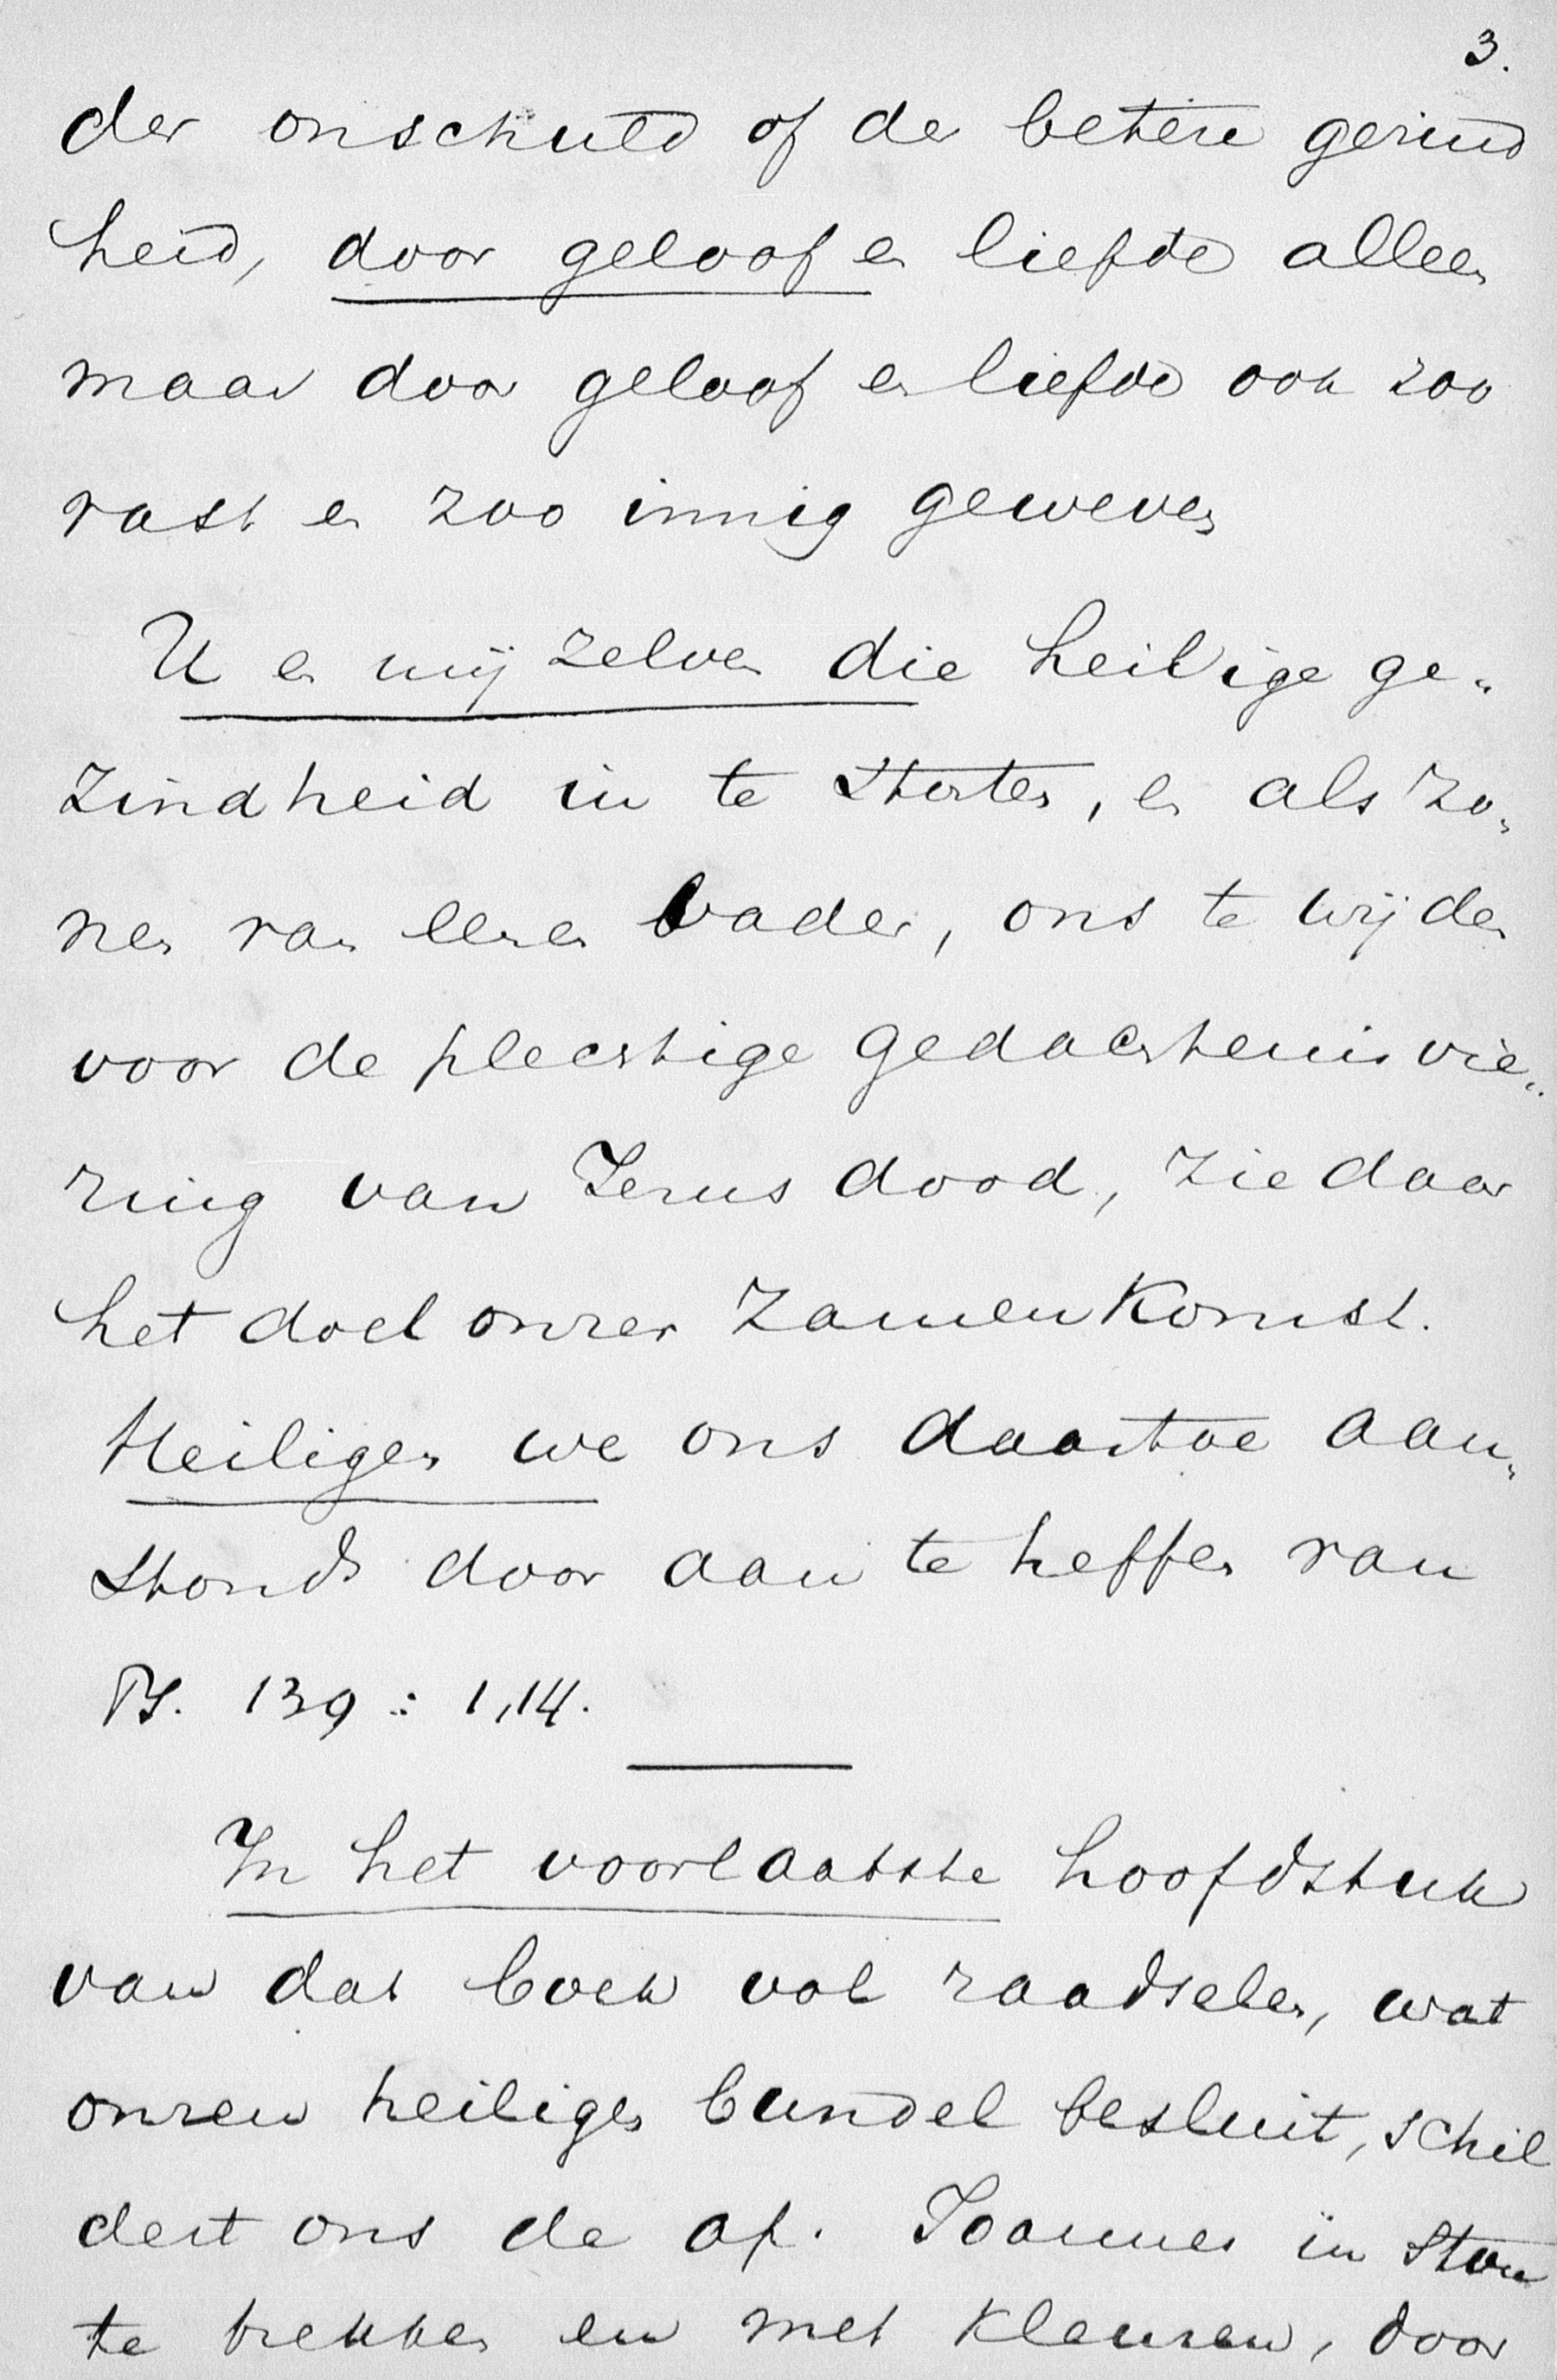 3.
der onschuld of der betere gezind
heid, door geloof en liefde alleen
maar door geloof en liefde ook zoo
vast en zoo innig geweven
U en mij zelven die heilige ge„
zindheid in te storten, en als zo„
nen van eenen vader, ons te wijden
voor de plechtige gedachtenisvie„
ring van Jezus dood, zie daar
het doel onzer zamenkomst.
Heiligen we ons daartoe aan„
stonds door aan te heffen van
Ps. 139 : 1,14.
In het voorlaatste hoofdstuk
van dat boek vol raadselen, wat
onzen heiligen bundel besluit, schil
dert ons de ap. Joannes in stou
te trekken en met kleuren, door